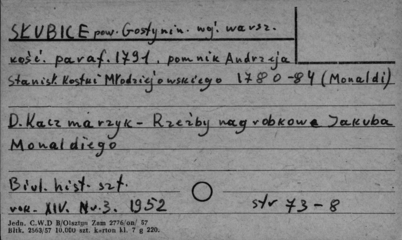 SKUBICE pow. Gostynin. woj. warsz.
kość. paraf. 1791. pomnik Andrzeja
Stanisł. Kostki Młodziejowskiego 1780-84 (Monaldi)
D. Kaczmarzyk - Rzeźby nagrobkowe Jakuba
Monaldiego
Biul. hist. szt.
rok. XIV. Nr. 3. 1952 str 73-8
Jedn. C.W.D B/Olsztyn Zam 2776/on/ 57
Bltk. 2563/57 10.000 szt. karton kl. 7 g 220.